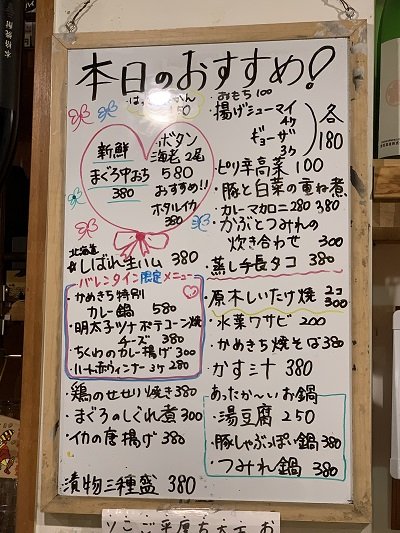 本日のおすすめ!
新鮮
まぐろ中おち
380
ボタン
海老 2尾
580
おすすめ!!
ホタルイカ
380
北海道
しばれ生ハム 380
バレンタイン限定メニュー
かめきち特別
カレー鍋 580
・明太子ツナポテコーン焼
チーズ 380
・ちくわのカレー揚げ 300
・ハート赤ウィンナー 3ヶ 280
・鶏のせせり焼き 380
・まぐろのしぐれ煮 300
・イカの唐揚げ 380
漬物三種盛 380
おもち 100
・揚げシューマイ
4ヶ
ギョーザ
3ヶ
各
180
・ピリ辛高菜 100
・豚と白菜の重ね煮
・カレーマカロニ 280 380
・かぶとつみれの
炊き合わせ 300
・蒸し手長タコ 380
・原木しいたけ焼 2コ
300
・水菜ワサビ 200
・かめきち焼そば 380
・かす汁 380
あったか〜いお鍋
・湯豆腐 250
・豚しゃぶっぽい鍋 380
・つみれ鍋 380